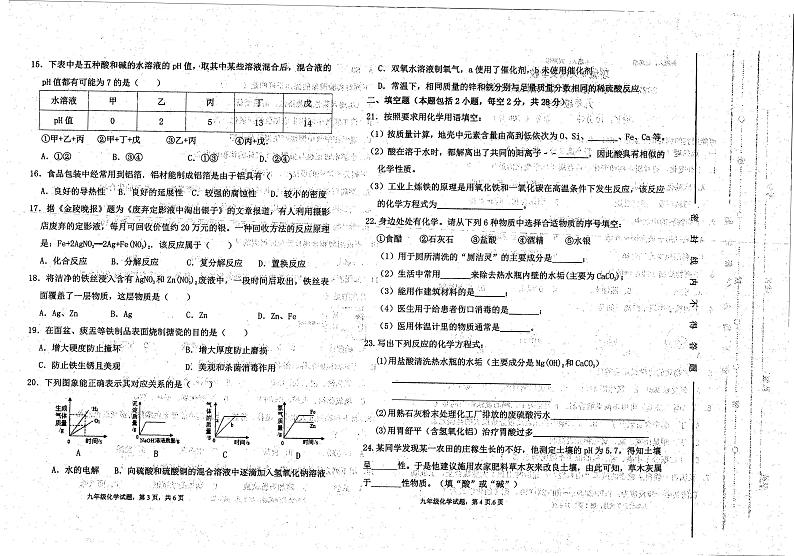 15. 下表中是五种酸和碱的水溶液的 pH 值,取其中某些溶液混合后,混合液的
pH 值都有可能为 7 的是( )
水溶液 甲 乙 丙 丁 戊
pH 值 0 2 5 13 14
①甲+乙+丙 ②甲+丁+戊 ③乙+丙 ④丙+戊
A. ①② B. ③④ C. ①③ D. ②④
16. 食品包装中经常用到铝箔,铝材能制成铝箔是由于铝具有( )
A. 良好的导热性 B. 良好的延展性 C. 较强的腐蚀性 D. 较小的密度
17. 据《金陵晚报》题为《废弃定影液中淘出银子》的文章报道,有人利用摄影
店废弃的定影液,每月可回收价值约 20 万元的银。一种回收方法的反应原理
是:Fe+2AgNO₃═2Ag+Fe(NO₃)₂,该反应属于( )
A. 化合反应 B. 分解反应 C. 复分解反应 D. 置换反应
18. 将洁净的铁丝浸入含有 AgNO₃ 和 Zn(NO₃)₂ 废液中,一段时间后取出,铁丝表
面覆盖了一层物质,这层物质是( )
A. Ag、Zn B. Ag C. Zn D. Zn、Fe
19. 在面盆、痰盂等铁制品表面烧制搪瓷的目的是( )
A. 增大硬度防止撞坏 B. 增大厚度防止磨损
C. 防止铁生锈且美观 D. 美观和杀菌消毒作用
20. 下列图象能正确表示其对应关系的是( )
生成气体质量/g H₂ O₂ 0 时间/s
沉淀质量/g 0 NaOH溶液质量/g
气体的质量/g a b 0 时间/s
氢气质量/g Fe Zn 0 时间/s
A B C D
A. 水的电解 B. 向硫酸和硫酸铜的混合溶液中逐滴加入氢氧化钠溶液
九年级化学试题,第 3 页,共 6 页
C. 双氧水溶液制氧气,a 使用了催化剂,b 未使用催化剂
D. 常温下,相同质量的锌和铁分别与足量质量分数相同的稀硫酸反应
二、填空题(本题包括 2 小题,每空 2 分,共 28 分)
21. 按照要求用化学用语填空:
(1)按质量计算,地壳中元素含量由高到低依次为 O、Si、______、Fe、Ca 等,
(2)酸在溶于水时,都解离出了共同的阳离子--______,因此酸具有相似的
化学性质。
(3)工业上炼铁的原理是用氧化铁和一氧化碳在高温条件下发生反应,该反应
的化学方程式为______。
22. 身边处处有化学。请从下列 6 种物质中选择合适物质的序号填空:
①食醋 ②石灰石 ③盐酸 ④酒精 ⑤水银
(1)用于厕所清洗的“厕洁灵”的主要成分是______;
(2)生活中常用______来除去热水瓶内壁的水垢(主要为 CaCO₃);
(3)能用作建筑材料的是______;
(4)医生用于给患者伤口消毒的是______;
(5)医用体温计里的物质通常是______。
23. 写出下列反应的化学方程式:
(1)用盐酸清洗热水瓶的水垢(主要成分是 Mg(OH)₂ 和 CaCO₃)
(2)用熟石灰粉末处理化工厂排放的废硫酸污水______
(3)用胃舒平(含氢氧化铝)治疗胃酸过多______
24. 某同学发现某一农田的庄稼生长的不好,他测定土壤的 pH 为 5.7,得知土壤
呈______性。于是他建议施用农家肥料草木灰来改良土壤,由此可知,草木灰属
于______性物质。(填“酸”或“碱”)
九年级化学试题,第 4 页,6 页
密封线内不得答题